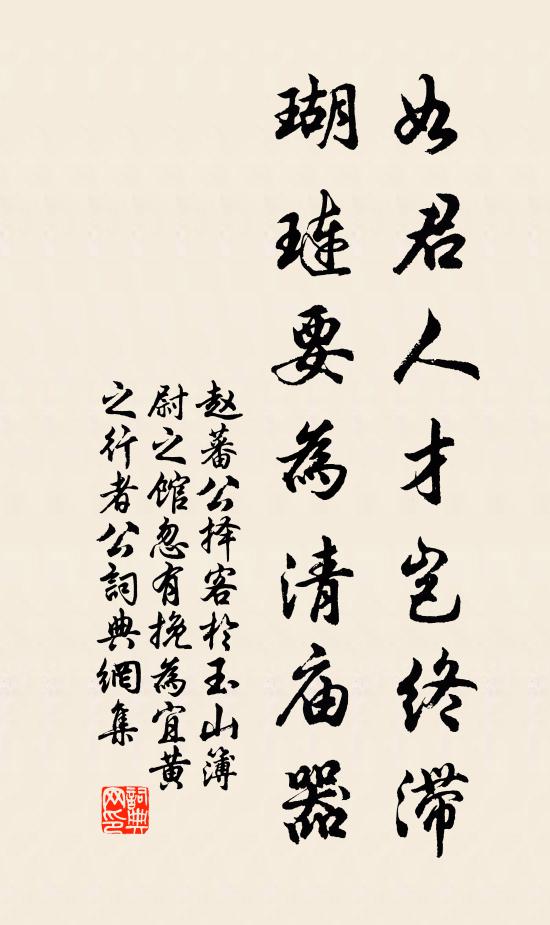 如君人才岂终滞
瑚琏要為清庙器
赵蕃公择客於玉山簿
尉之馆忽有挽為宜黄
之行者公詞典網集
詞典网印